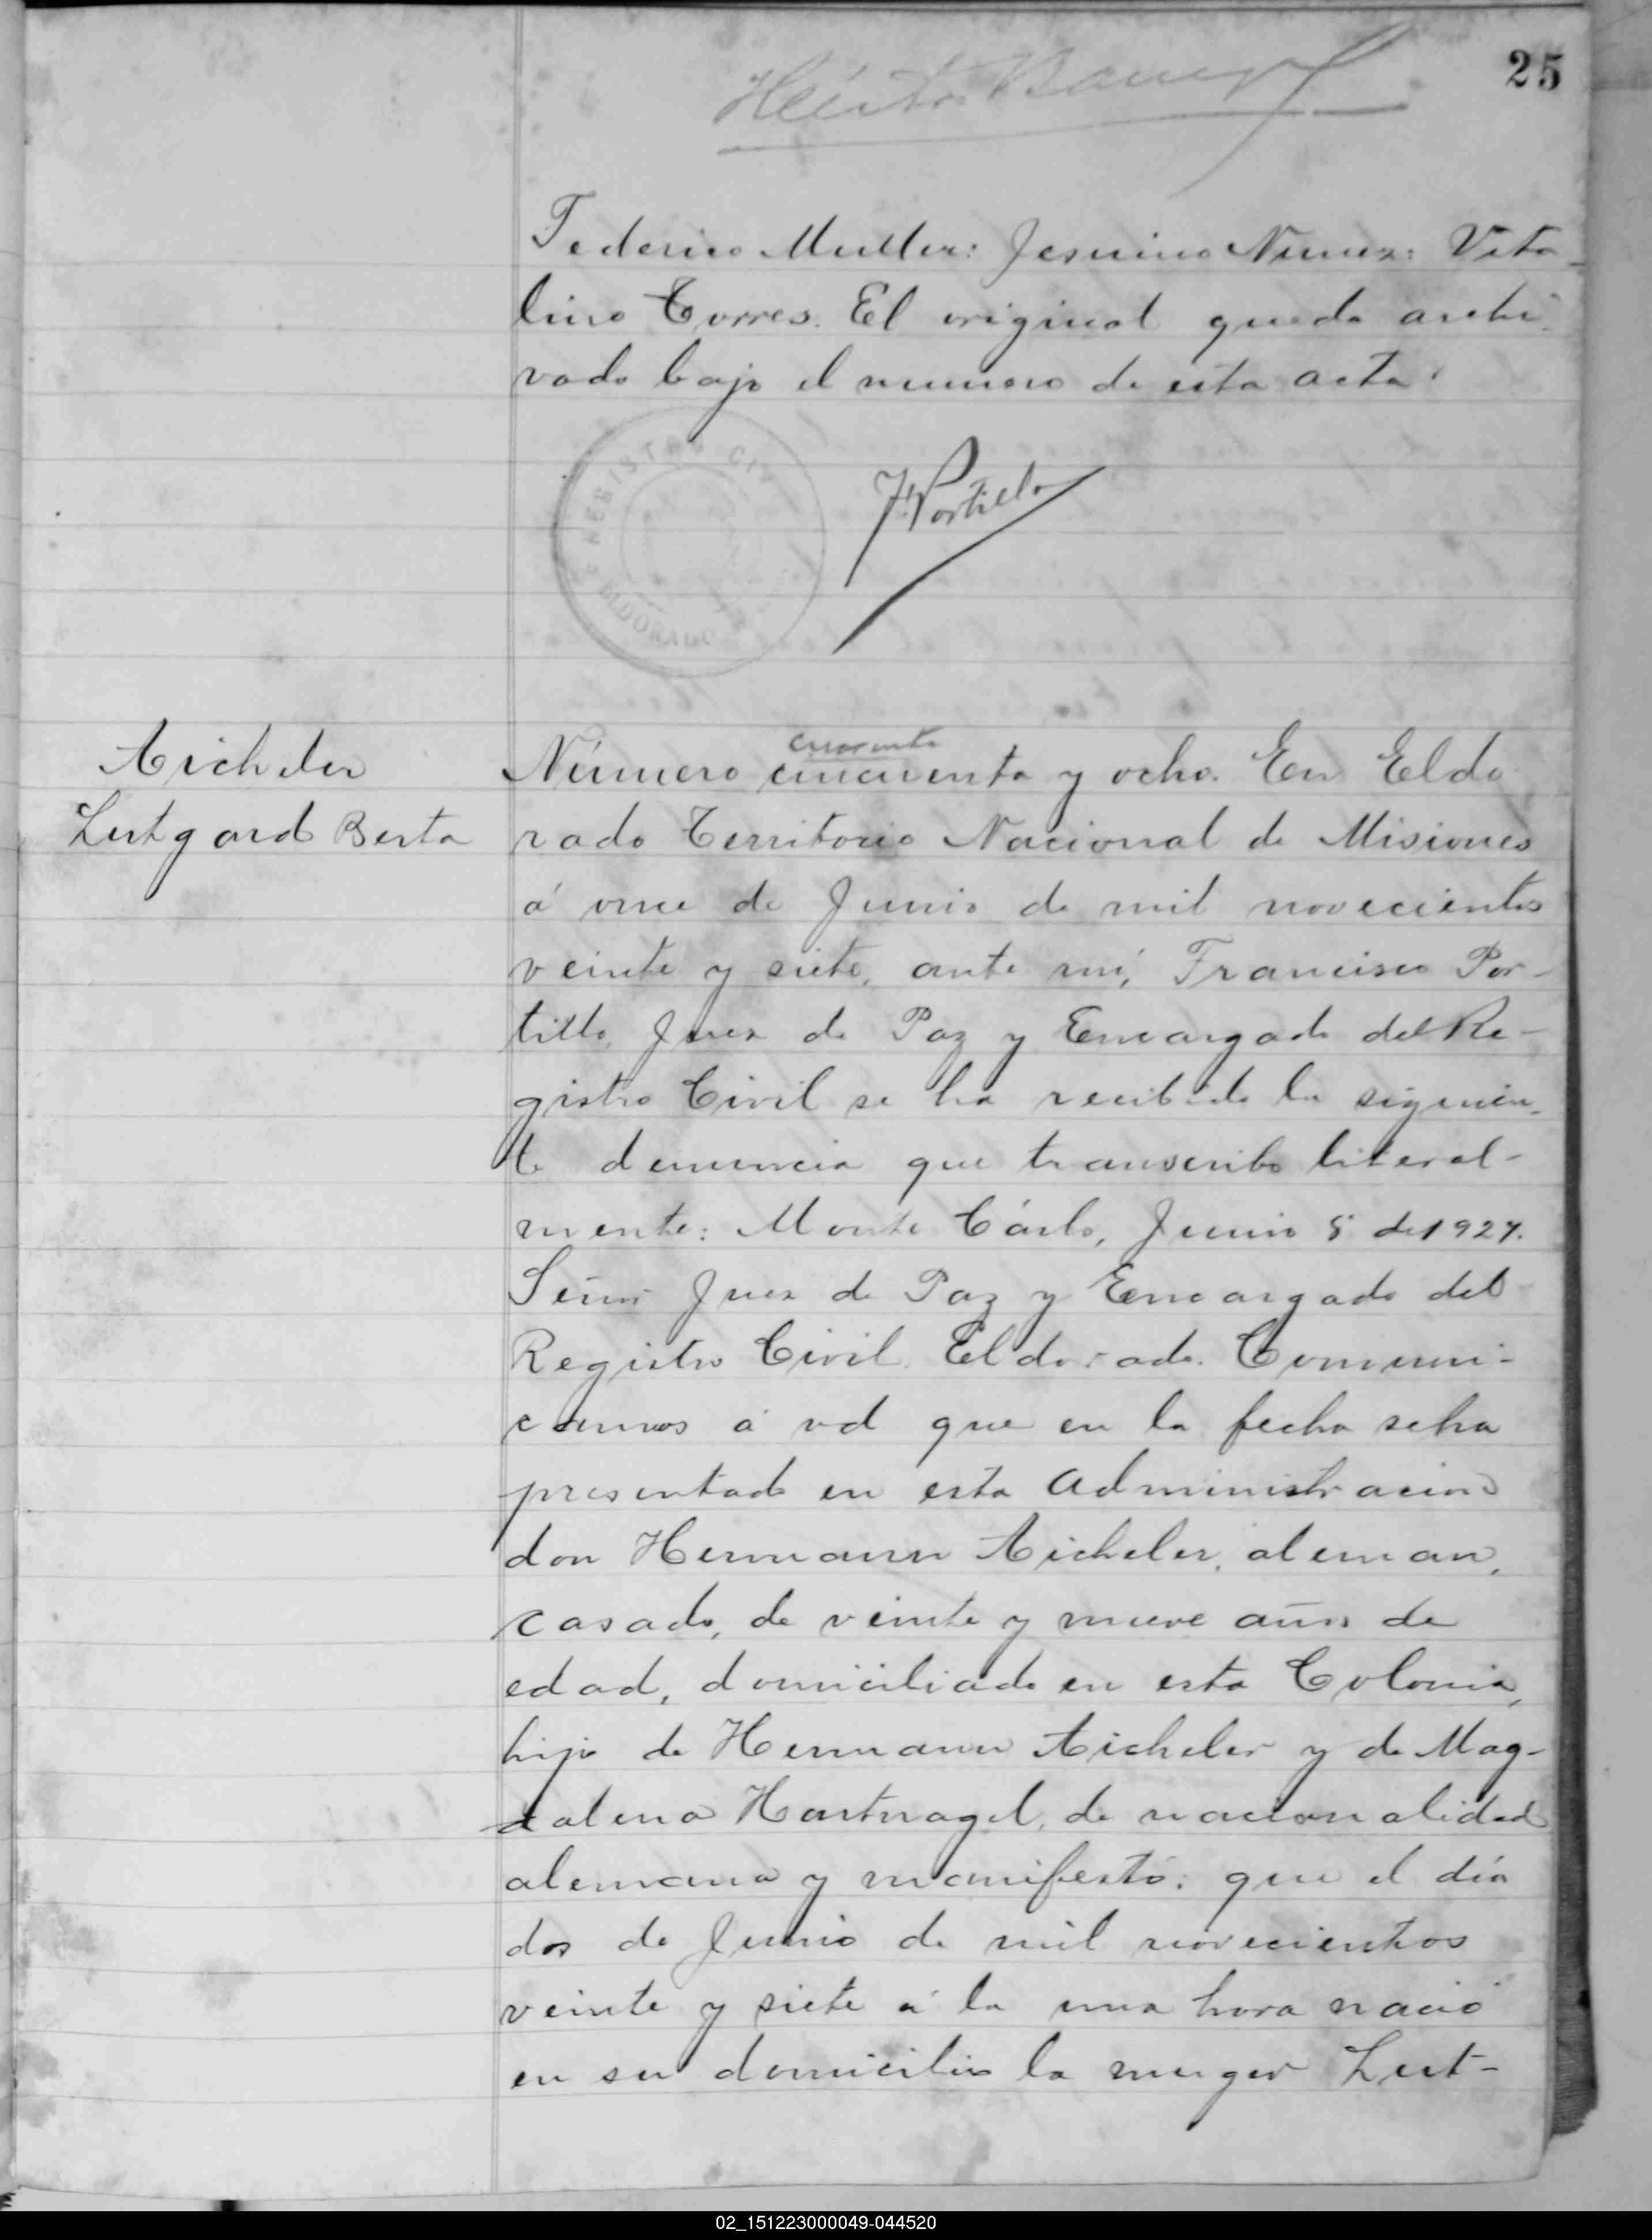 25
Federico Muller: Jesuino Nunez: Vita-
lino Torres. El original queda archi-
vado bajo el numero de esta acta.
REGISTRO CIV
ELDORADO
F. Portillo
Aicheler
Lutgard Berta
cuarenta
Número cincuenta y ocho. En Eldo-
rado Territorio Nacional de Misiones
á once de Junio de mil novecientos
veinte y siete, ante mí, Francisco Por-
tillo, Juez de Paz y Encargado del Re-
gistro Civil se ha recibido la siguien-
te denuncia que transcribo literal-
mente: Monte Cárlo, Junio 5 de 1927.
Señor Juez de Paz y Encargado del
Registro Civil. Eldorado. Comuni-
camos á vd que en la fecha se ha
presentado en esta Administracion
don Hermann Aicheler, aleman,
casado, de veinte y nueve años de
edad, domiciliado en esta Colonia,
hijo de Hermann Aicheler y de Mag-
dalena Hartnagel, de nacionalidad
alemana y manifestó: que el día
dos de Junio de mil novecientos
veinte y siete á la una hora nació
en su domicilio la muger Lut-
02_151223000049-044520